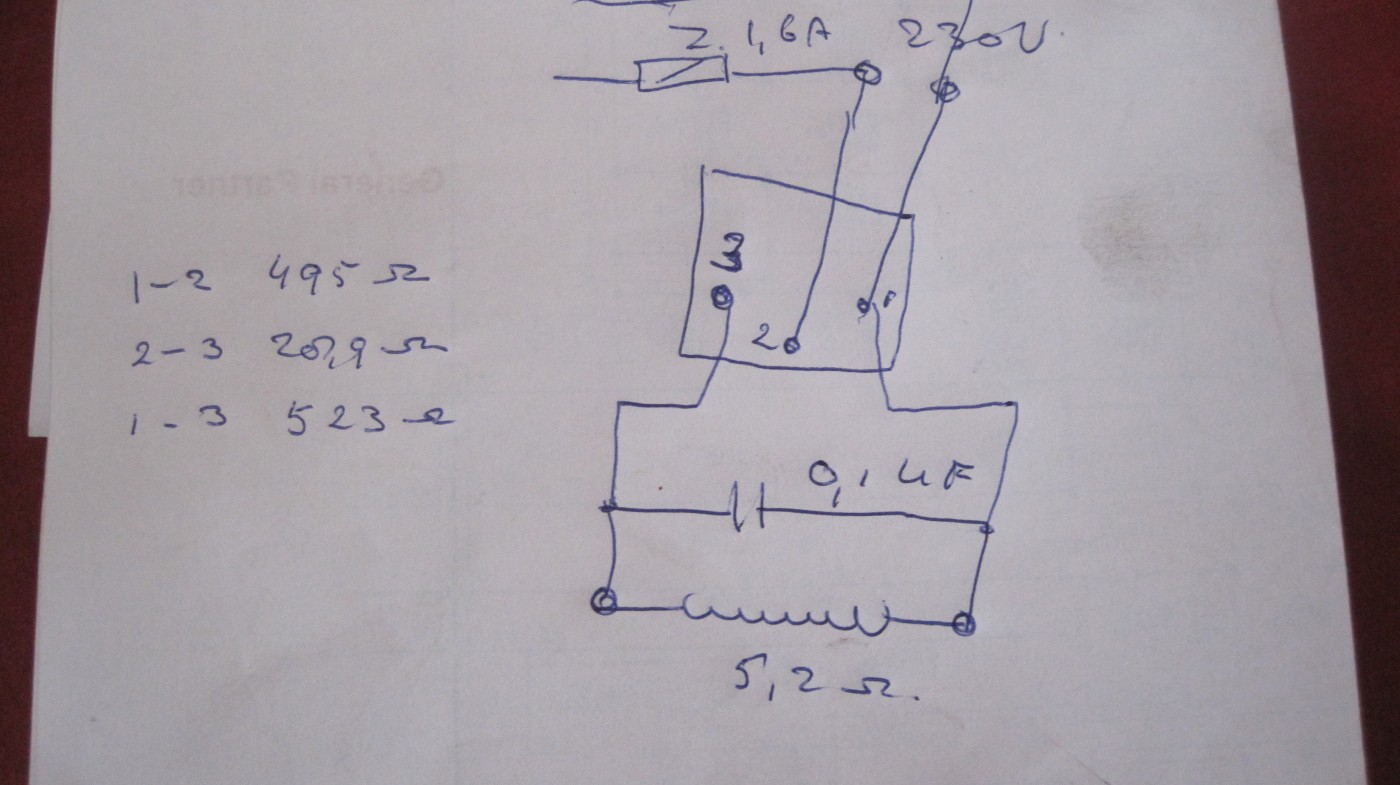 Z. 1,6A 230V.
General Partner
3
1-2 495 Ω
2 1
2-3 Ω
1-3 523 Ω
0,1 uF
5,2 Ω.